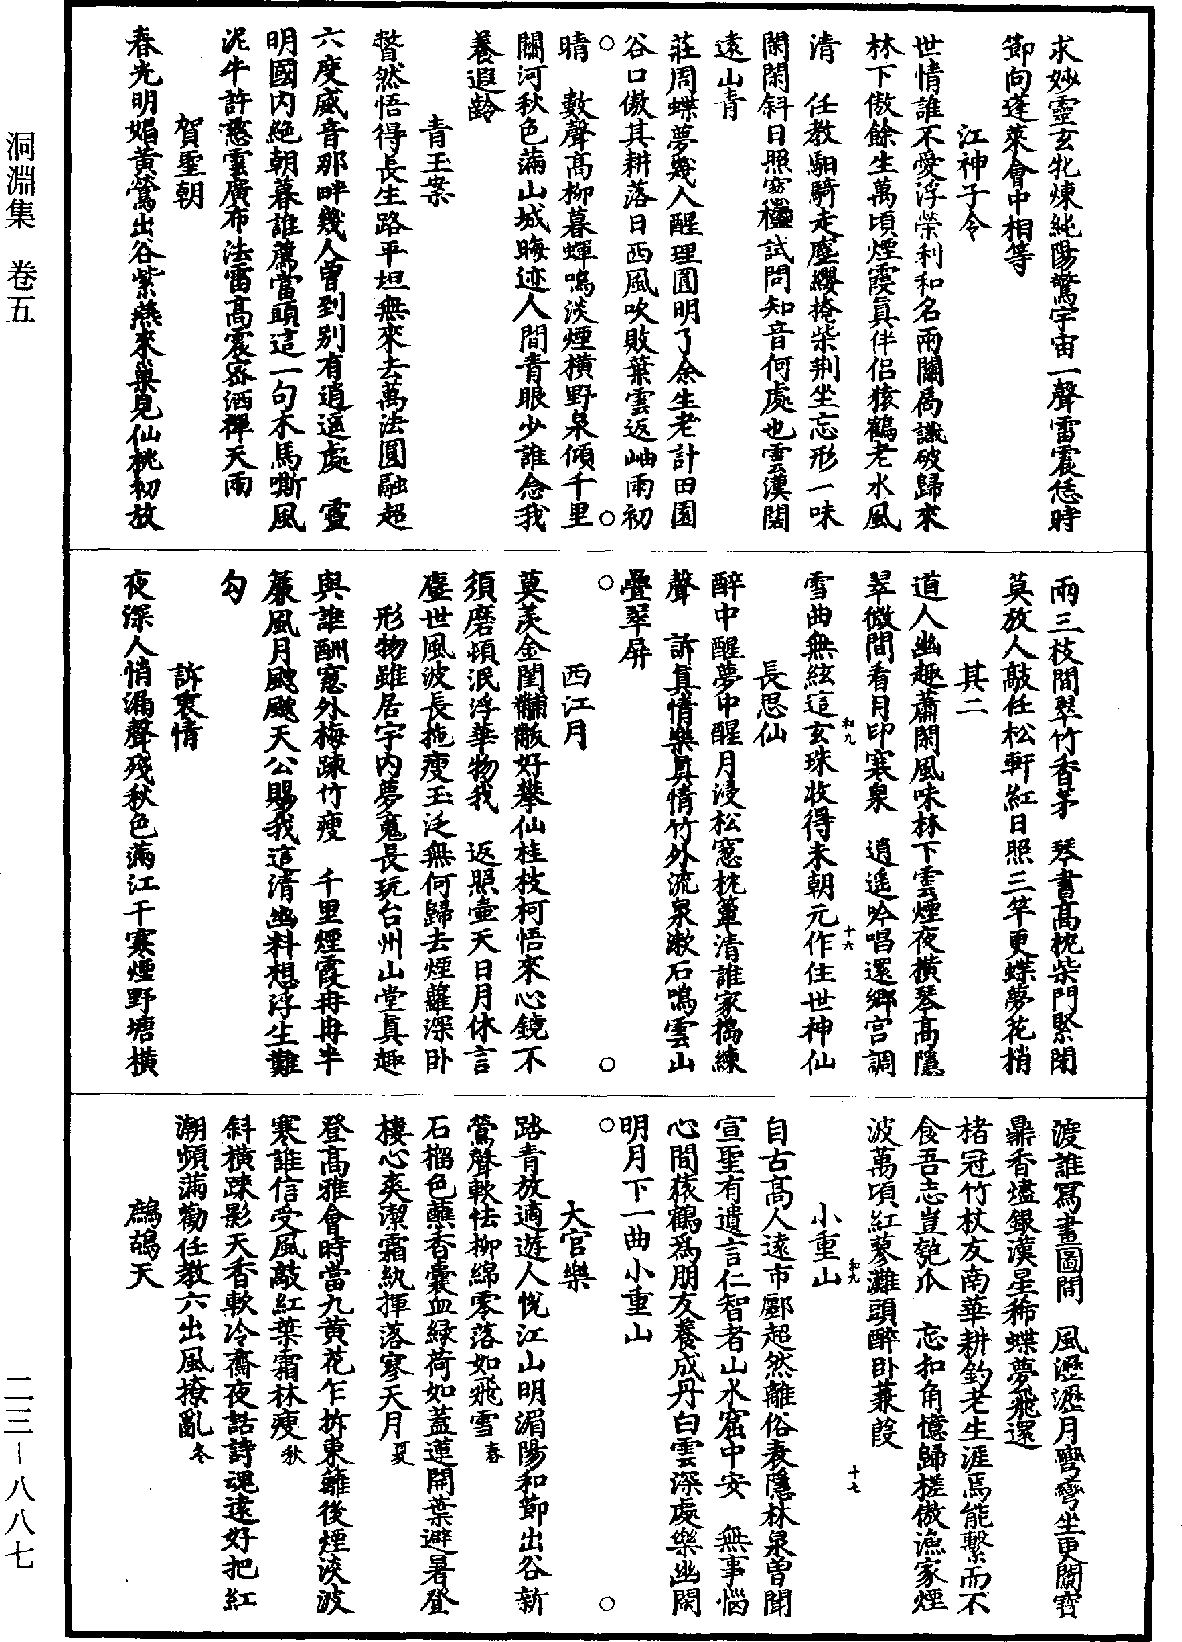 求妙靈玄牝煉純陽驚宇宙一聲雷震恁時
節向蓬萊會中相等
江神子令
世情誰不愛浮榮利和名兩關扃識破歸來
林下傲餘生萬頃煙霞真伴侶猿鶴老水風
清　任教駟騎走塵纓掩柴荆坐忘形一味
閑閑斜日照窓櫺試問知音何處也雲漢闊
遠山青
莊周蝶夢幾人醒理圓明了余生老計田園
谷口傲其耕落日西風吹敗葉雲返岫雨初
○　○
晴　數聲高柳暮蟬鳴淡煙橫野泉傾千里
關河秋色滿山城晦迹人間青眼少誰念我
養遐齡
青玉案
瞥然悟得長生路平坦無來去萬法圓融超
六度威音那畔幾人曾到別有逍遥處　靈
明國內絶朝暮誰薦當頭這一句木馬嘶風
泥牛許慈雲廣布法雷高震密洒禪天雨
賀聖朝
春光明媚黃鶯出谷紫燕來巢見仙桃初放
兩三枝間翠竹香茅　琴書高枕柴門緊閉
莫放人敲任松軒紅日照三竿更蝶夢花梢
其二
道人幽趣蕭閑風味林下雲煙夜橫琴高隱
翠微間看月印寒泉　逍遥吟唱還鄉宫調
和九　十六
雪曲無絃這玄珠收得未朝元作住世神仙
長思仙
醉中醒夢中醒月浸松窓枕簟清誰家搗練
聲　訴真情樂真情竹外流泉漱石鳴雲山
疊翠屏
○　○
西江月
莫羡金閨黼黻好攀仙桂枝柯悟來心鏡不
須磨頓泯浮華物我　返照壺天日月休言
塵世風波長拖瘦玉泛無何歸去煙蘿深卧
形物雖居宇內夢魂長玩台州山堂真趣
與誰酬窓外梅踈竹瘦　千里煙霞冉冉半
簾風月颼颼天公賜我這清幽料想浮生難
勾
訴衷情
夜深人悄漏聲殘秋色滿江干寒煙野塘橫
渡誰寫畫圖間　風瀝瀝月彎彎坐更闌寶
鼎香燼銀漢星稀蝶夢飛還
楮冠竹杖友南華耕釣老生涯焉能繫而不
食吾志豈匏瓜　忘扣角憶歸槎傲漁家煙
波萬頃紅蓼灘頭醉卧蒹葭
和九　十七
小重山
自古高人遠市鄽超然離俗裹隱林泉曽聞
宣聖有遺言仁智者山水窟中安　無事惱
心間猿鶴爲朋友養成丹白雲深處樂幽閑
明月下一曲小重山
○　○
大官樂
路青放適遊人悅江山明湄陽和節出谷新
鶯聲軟怯柳綿零落如飛雪春
石榴色蘸香囊血緑荷如蓋蓮開葉避暑登
樓心爽潔霜紈揮落寒天月夏
登高雅會時當九黃花乍拆東籬後煙淡波
寒誰信受風敲紅葉霜林瘦秋
斜橫踈影天香軟冷齋夜話詩魂遠好把紅
潮頻滿勸任教六出風撩亂冬
鷓鴣天
洞淵集　卷五
二三—八八七